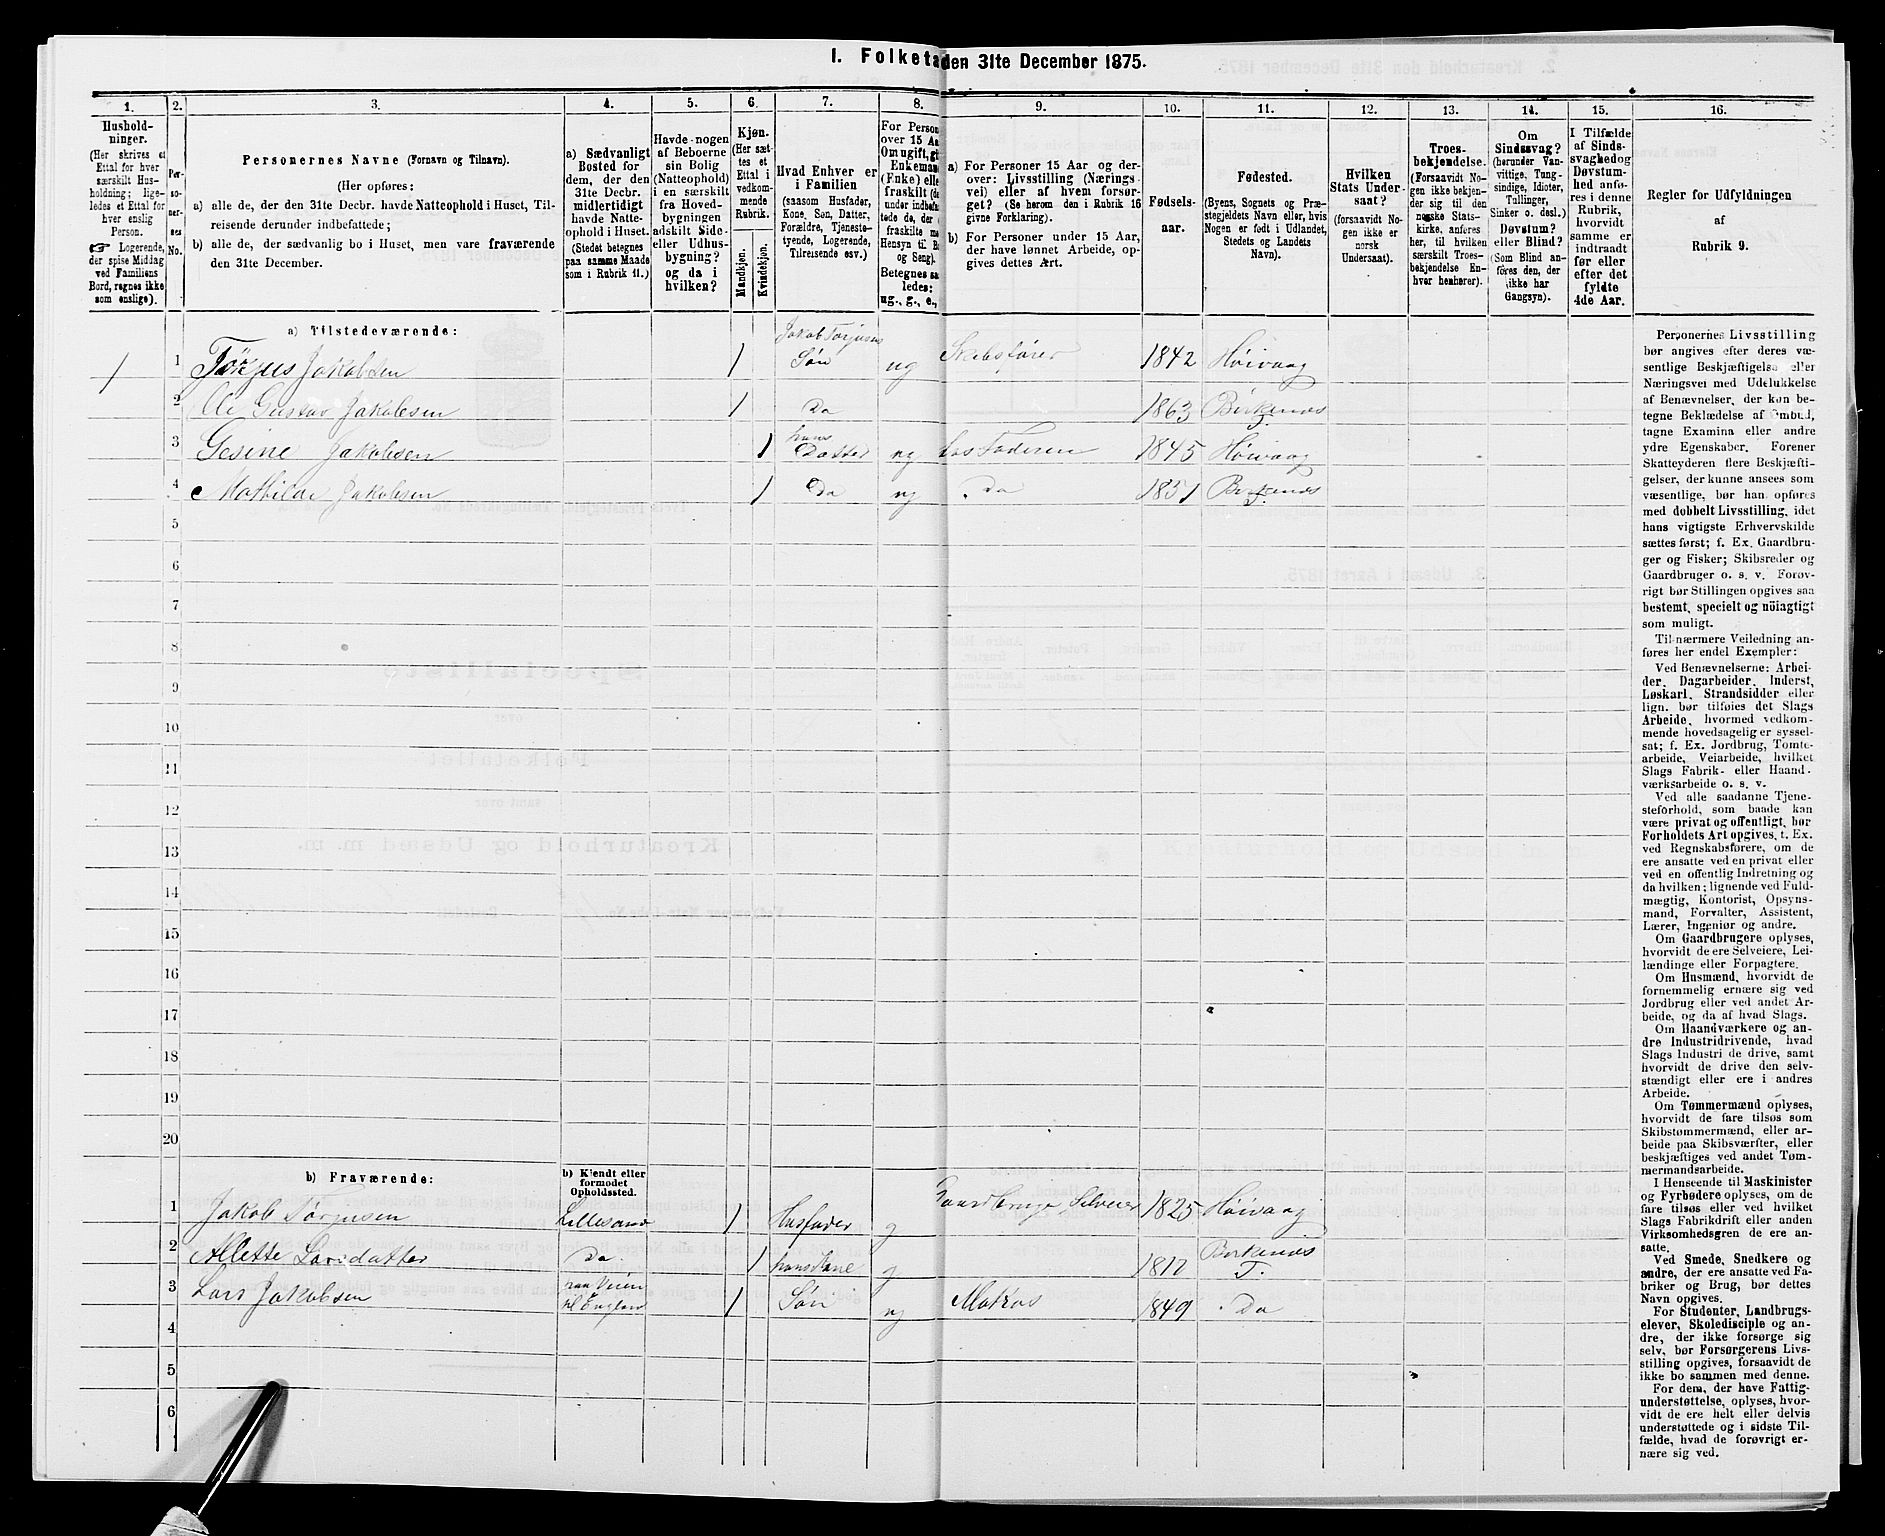 I. Folketa den 31te December 1875.
1. 2. 3. 4. 5. 6. 7. 8. 9. 10. 11. 12. 13. 14. 15. 16.
Hushold-
ninger.
(Her skrives et
Ettal for hver
særskilt Hus-
holdning; lige-
ledes et Ettal for
hver enslig
Person.
☞ Logerende,
der spise Middag
ved Familiens
Bord, regnes ikke
som enslige).
Per-
so-
ner-
nes
No.
Personernes Navne (Fornavn og Tilnavn).
(Her opføres:
a) alle de, der den 31te Decbr. havde Natteophold i Huset, Til-
reisende derunder indbefattede;
b) alle de, der sædvanlig bo i Huset, men vare fraværende
den 31te December.
a) Sædvanligt
Bosted for
dem, der den
31te Decbr.
midlertidigt
havde Natte-
ophold i Huset.
(Stedet betegnes
paa samme Maade
som i Rubrik 11.)
Havde nogen
af Beboerne
sin Bolig
(Natteophold)
i en særskilt
fra Hoved-
bygningen
adskilt Side-
eller Udhus-
bygning?
og da i
hvilken?
Kjøn.
(Her sæt-
tes et
Ettal i
vedkom-
mende
Rubrik.
Mandkjøn.
Kvindekjøn.
Hvad Enhver er
i Familien
(saasom Husfader,
Kone, Søn, Datter,
Forældre, Tjeneste-
tyende, Logerende,
Tilreisende osv.)
For Person
over 15 Aa
Om ugift, gi
Enkema
(Enke) elle
fraskilt (d
under indbefat
tede de, der
fraskilte me
Hensyn til B
og Seng).
Betegnes saa
ledes:
ug., g., e.,
a) For Personer 15 Aar og der-
over: Livsstilling (Nærings-
vei) eller af hvem forsør-
get? (Se herom den i Rubrik 16
givne Forklaring).
b) For Personer under 15 Aar,
der have lønnet Arbeide, op-
gives dettes Art.
Fødsels-
aar.
Fødested.
(Byens, Sognets og Præ-
stegjeldets Navn eller, hvis
Nogen er født i Udlandet,
Stedets og Landets
Navn).
Hvilken
Stats Under-
saat?
(forsaavidt No-
gen ikke er
norsk
Undersaat).
Troes-
bekjendelse.
(Forsaavidt No-
gen ikke bekjen-
der sig til den
norske Stats-
kirke, anføres
her, til hvilken
særskilt Troes-
bekjendelse En-
hver henhører).
Om
Sindssvag?
(herunder Van-
vittige, Tung-
sindige, Idioter,
Tullinger,
Sinker o. desl.)
Døvstum?
eller Blind?
(Som Blind an-
føres den, der
ikke har
Gangsyn).
I Tilfælde
af Sinds-
svaghed og
Døvstum-
hed anfø-
res i denne
Rubrik,
hvorvidt
samme er
indtraadt
før eller
efter det
fyldte
4de Aar.
Regler for Udfyldningen
af
Rubrik 9.
a) Tilstedeværende:
1 1 Tørjus Jakobsen 1 Jakob Torjusens Søn ug Skibsfører 1842 Høivaag
2 Ole Gustav Jakobsen 1 Do 1863 Birkenæs
3 Gesine Jakobsen 1 hans Datter ug hos Faderen 1845 Høivaag
4 Mathilde Jakobsen 1 Do ug Do 1851 Birkenæs
5
6
7
8
9
10
11
12
13
14
15
16
17
18
19
20
b) Fraværende:
b) Kjendt eller
formodet
Opholdssted.
1 Jakob Tørjusen Lillesand 1 Husfader g Gaardbruger Selveier 1825 Høivaag
2 Allette Larsdatter Do. 1 hans Kone g Birkenæs T.
3 Lars Jakobsen paa Veien til England 1 Søn ug Matros 1849 Do
4
5
6
Personernes Livsstilling
bør angives efter deres væ-
sentlige Beskjæftigelse eller
Næringsvei med Udelukkelse
af Benævnelser, der kun be-
tegne Beklædelse af Ombud,
tagne Examina eller andre
ydre Egenskaber. Forener
Skatteyderen flere Beskjæfti-
gelser, der kunne ansees som
væsentlige, bør han opføres
med dobbelt Livsstilling, idet
hans vigtigste Erhvervskilde
sættes først; f. Ex. Gaardbru-
ger og Fisker; Skibsreder og
Gaardbruger o. s. v. Forøv-
rigt bør Stillingen opgives saa
bestemt, specielt og nøiagtigt
som muligt.
Til nærmere Veiledning an-
føres her endel Exempler:
Ved Benævnelserne: Arbei-
der, Dagarbeider, Inderst,
Løskarl, Strandsidder eller
lign. bør tilføies det Slags
Arbeide, hvormed vedkom-
mende hovedsagelig er syssel-
sat; f. Ex. Jordbrug, Tomte-
arbeide, Veiarbeide, hvilket
Slags Fabrik- eller Haand-
værksarbeide o. s. v.
Ved alle saadanne Tjene-
steforhold, som baade kan
være privat og offentligt, bør
Forholdets Art opgives, t. Ex.
ved Regnskabsførere, om de
ere ansatte ved en privat eller
ved en offentlig Indretning og
da hvilken; lignende ved Fuld-
mægtig, Kontorist, Opsyns-
mand, Forvalter, Assistent,
Lærer, Ingeniør og andre.
Om Gaardbrugere oplyses,
hvorvidt de ere Selveiere, Lei-
lændinge eller Forpagtere.
Om Husmænd, hvorvidt de
fornemmelig ernære sig ved
Jordbrug eller ved andet Ar-
beide, og da af hvad Slags.
Om Haandværkere og an-
dre Industridrivende, hvad
Slags Industri de drive, samt
hvorvidt de drive den selv-
stændigt eller ere i andres
Arbeide.
Om Tømmermænd oplyses,
hvorvidt de fare tilsøs som
Skibstømmermænd, eller ar-
beide paa Skibsværfter, eller
beskjæftiges ved andet Tøm-
mermandsarbeide.
I Henseende til Maskinister
og Fyrbødere oplyses, om de
fare tilsøs eller ved hvilket
Slags Fabrikdrift eller anden
Virksomhedsgren de ere an-
satte.
Ved Smede, Snedkere og
andre, der ere ansatte ved Fa-
briker og Brug, bør dettes
Navn opgives.
For Studenter, Landbrugs-
elever, Skoledisciple og an-
dre, der ikke forsørge sig
selv, bør Forsørgerens Livs-
stilling opgives, forsaavidt de
ikke bo sammen med denne.
For dem, der have Fattig-
understøttelse, oplyses, hvor-
vidt de ere helt eller delvis
understøttede og i sidste Til-
fælde, hvad de forøvrigt er-
nære sig ved.